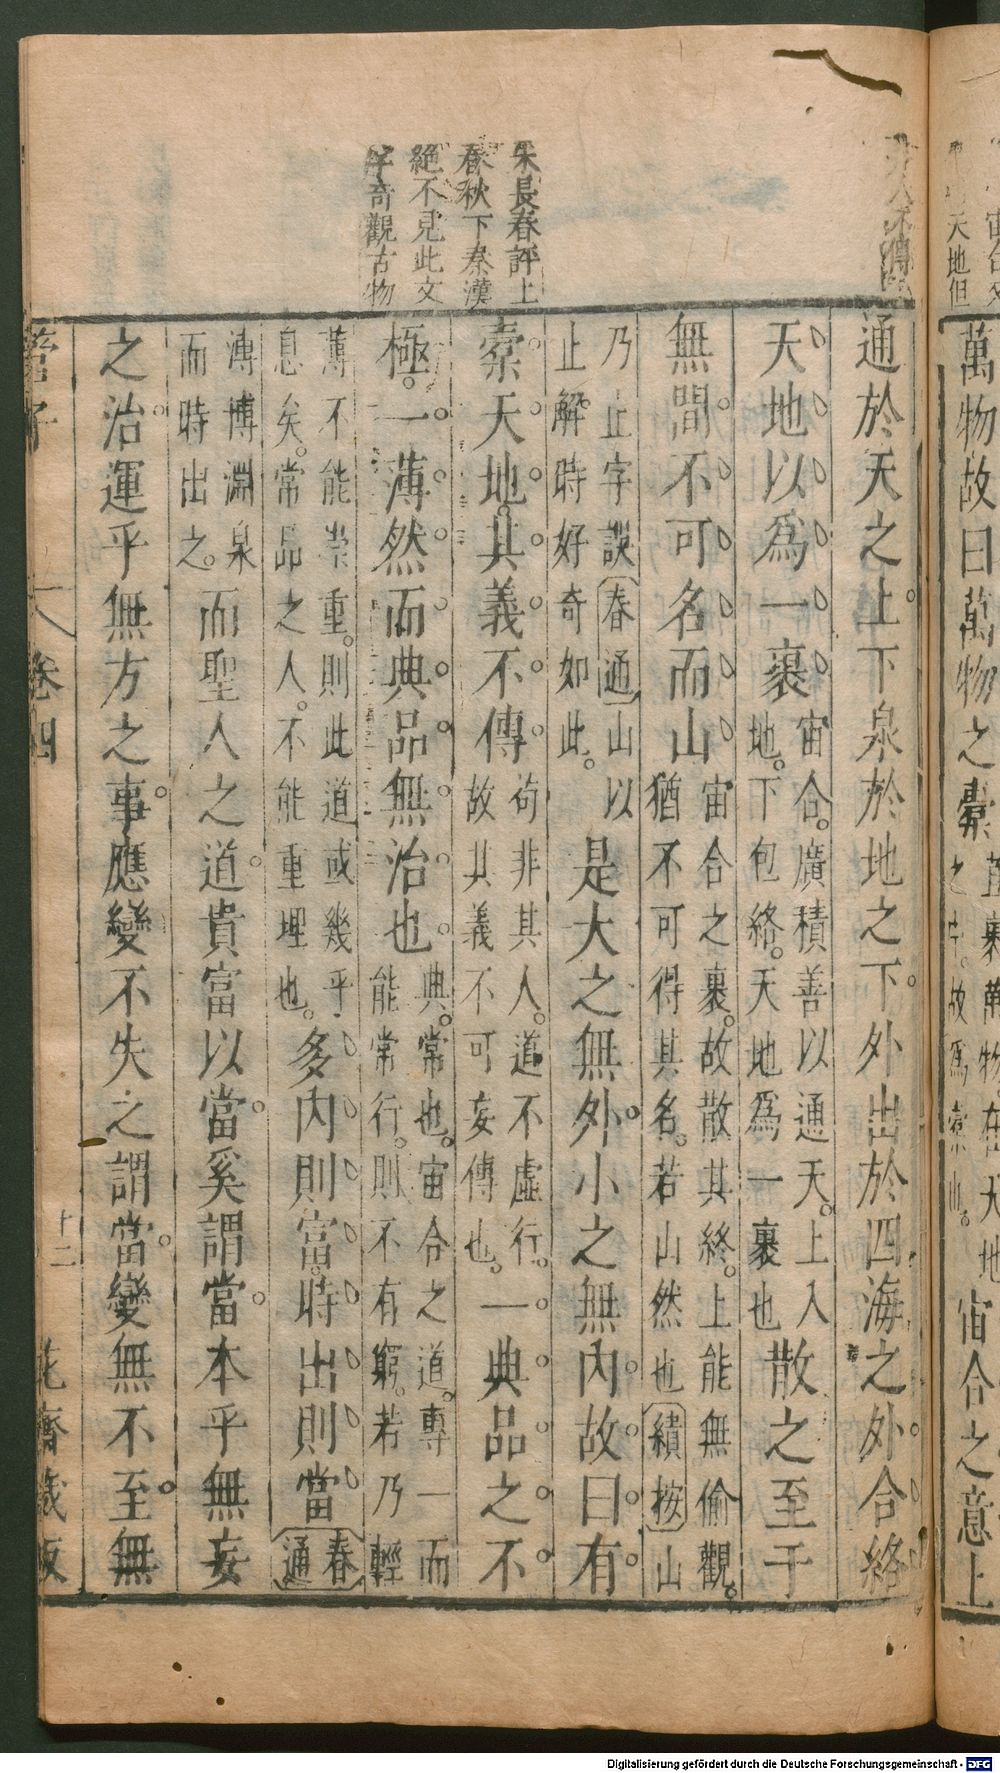 宙合之意上
萬物故曰萬物之橐
朱長春評上
春秋下秦漢
絕不見此文
字奇觀古物
通於天之上下泉於地之下外出於四海之外合絡
天地以爲一裹
宙合廣積善以通天上入
地下包絡天地爲一裹也
散之至于
無間不可名而山
宙合之裹故散其終上能無偷觀
猶不可得其名若山然也
續按
山
乃止字誤
春通
山以
止解時好奇如此
是大之無外小之無內故曰有
橐天地其義不傳
苟非其人道不虛行
故其義不可妄傳也
一典品之不
極一薄然而典品無治也
典常也宙合之道專一而
能常行則不有窮若乃輕
薄不能崇重則此道或幾乎
息矣常品之人不能重理也
多內則富時出則當
春通
溥博淵泉
而時出之
而聖人之道貴富以當奚謂當本乎無妄
之治運乎無方之事應變不失之謂當變無不至無
管子
卷四
十二
花齋藏板
Digitalisierung gefördert durch die Deutsche Forschungsgemeinschaft - DFG